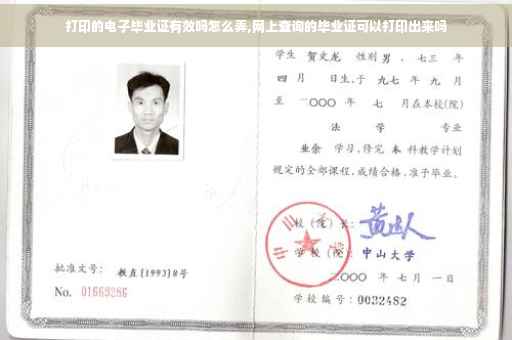 打印的电子毕业证有效吗怎么弄,网上查询的毕业证可以打印出来吗
学生 贺文龙 性别 男 、七三 年
四 月 日生,于 九七 年 九 月
至 二〇〇〇 年 七 月在本校(院)
法 学 专业
业余 学习,修完 本 科教学计划
规定的全部课程,成绩合格,准予毕业。
校(院)长:
学校(院): 中山大学
批准文号: 教直[1993]8号
二〇〇〇 年 七 月 一 日
No. 01669286
学校编号: 0032482